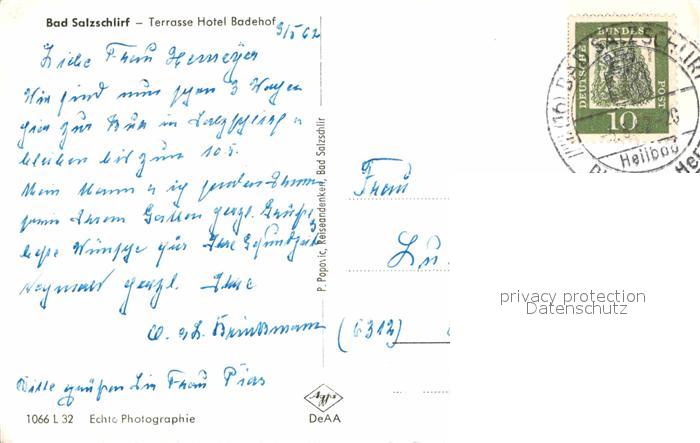 Bad Salzschlirf – Terrasse Hotel Badehof
3/5 62
Liebe Frau Hermeyer
Wir sind nun schon 3 Wochen
hier zur Kur in Salzschlirf u
bleiben bis zum 10.5.
Mein Mann u ich senden Ihnen
sowie Ihrem Gatten herzl. Grüße
beste Wünsche für Ihre Gesundheit
Nochmals herzl. Ihre
Brinkmann
Bitte grüßen Sie Frau Pias
1066 L 32 Echte Photographie
P. Popovic, Reiseandenken, Bad Salzschlirf
DeAA
Frau
Lu
(6312)
DEUTSCHE BUNDES POST
10
BAD SALZSCHLIRF
Heilbad
privacy protection
Datenschutz